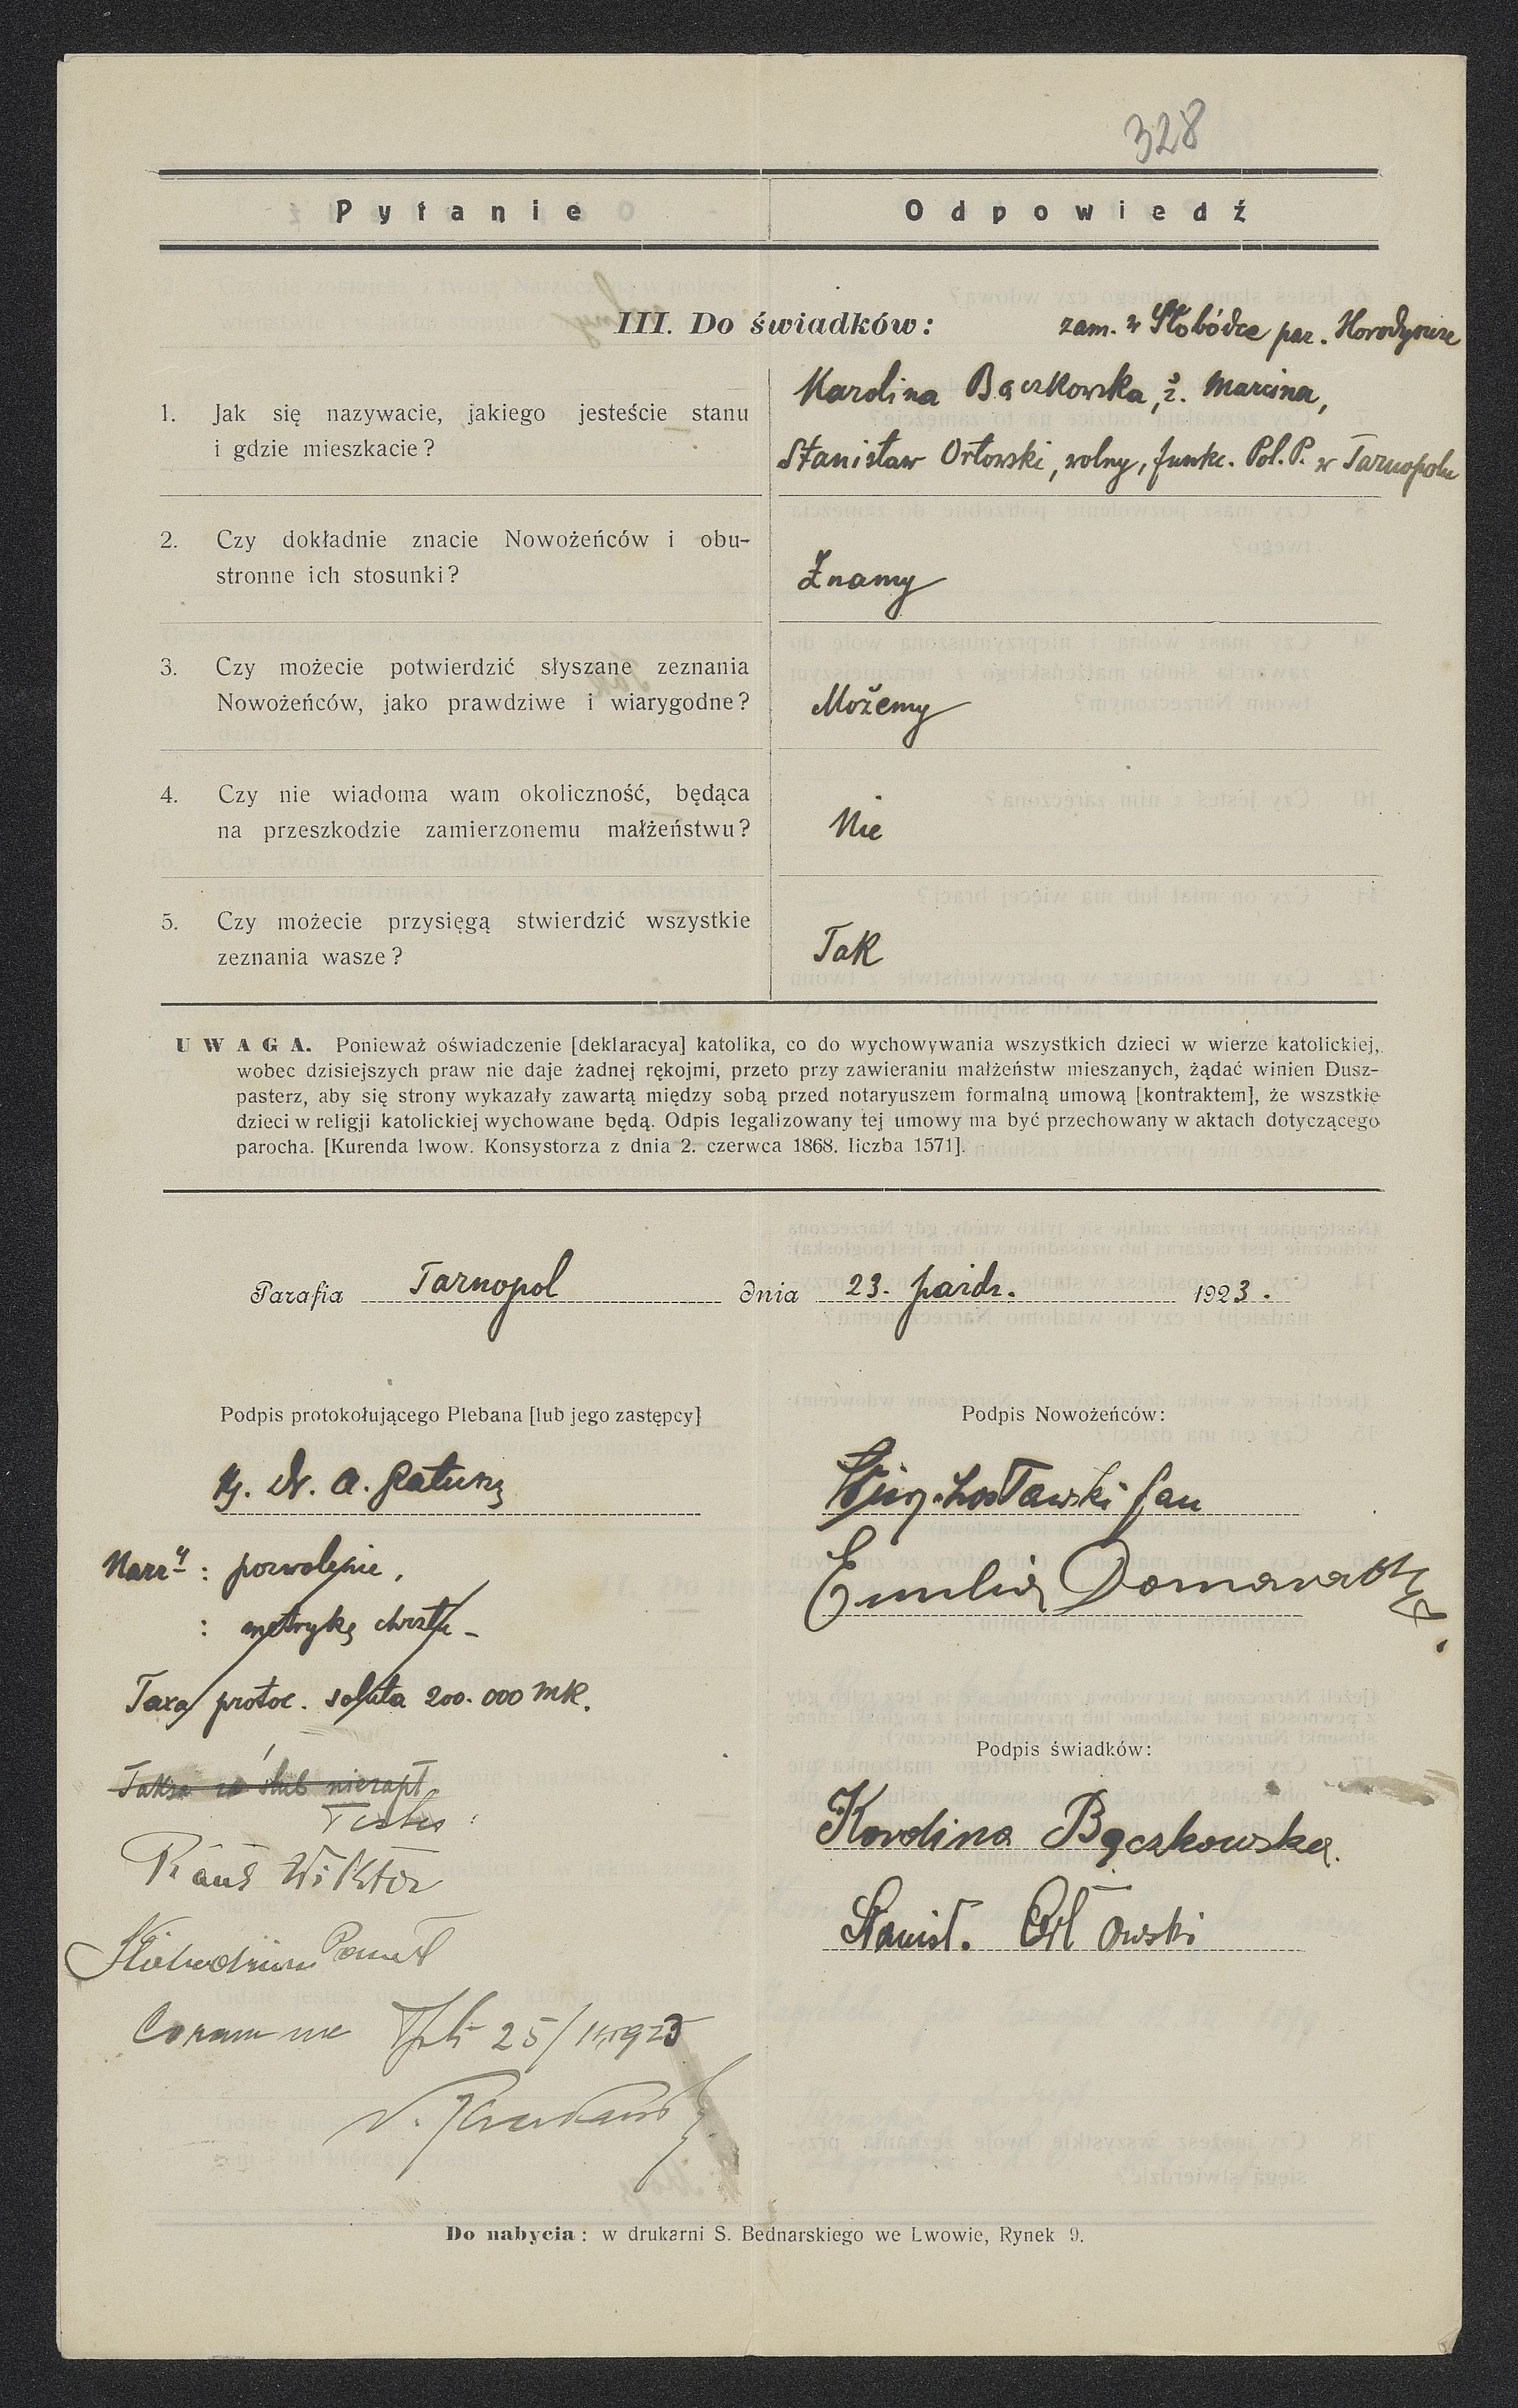 328
Pytanie Odpowiedź
III. Do świadków: zam. w Słobódce par. Horodyszcze
1. Jak się nazywacie, jakiego jesteście stanu
i gdzie mieszkacie?
Karolina Bączkowska, ż. Marcina,
Stanisław Orłowski, wolny, funkc. Pol. P. w Tarnopolu
2. Czy dokładnie znacie Nowożeńców i obu-
stronne ich stosunki?
Znamy
3. Czy możecie potwierdzić słyszane zeznania
Nowożeńców, jako prawdziwe i wiarygodne?
Możemy
4. Czy nie wiadoma wam okoliczność, będąca
na przeszkodzie zamierzonemu małżeństwu?
Nie
5. Czy możecie przysięgą stwierdzić wszystkie
zeznania wasze?
Tak
UWAGA. Ponieważ oświadczenie [deklaracya] katolika, co do wychowywania wszystkich dzieci w wierze katolickiej,
wobec dzisiejszych praw nie daje żadnej rękojmi, przeto przy zawieraniu małżeństw mieszanych, żądać winien Dusz-
pasterz, aby się strony wykazały zawartą między sobą przed notaryuszem formalną umową [kontraktem], że wszstkie
dzieci w religji katolickiej wychowane będą. Odpis legalizowany tej umowy ma być przechowany w aktach dotyczącego
parocha. [Kurenda lwow. Konsystorza z dnia 2. czerwca 1868. liczba 1571].
Parafia Tarnopol dnia 23. paźdz. 1923.
Podpis protokołującego Plebana [lub jego zastępcy]
X. Dr. A. Ratusz
Narz : pozwolenie,
: metrykę chrztu
Taxa protoc. soluta 200.000 mk.
Taksa za ślub niezapł.
Testes:
Wiktor
Paweł
Coram me 25/ 1923
Podpis Nowożeńców:
Jan
Emilia
Podpis świadków:
Karolina Bączkowska.
Stanisł. Orłowski
Do nabycia: w drukarni S. Bednarskiego we Lwowie, Rynek 9.